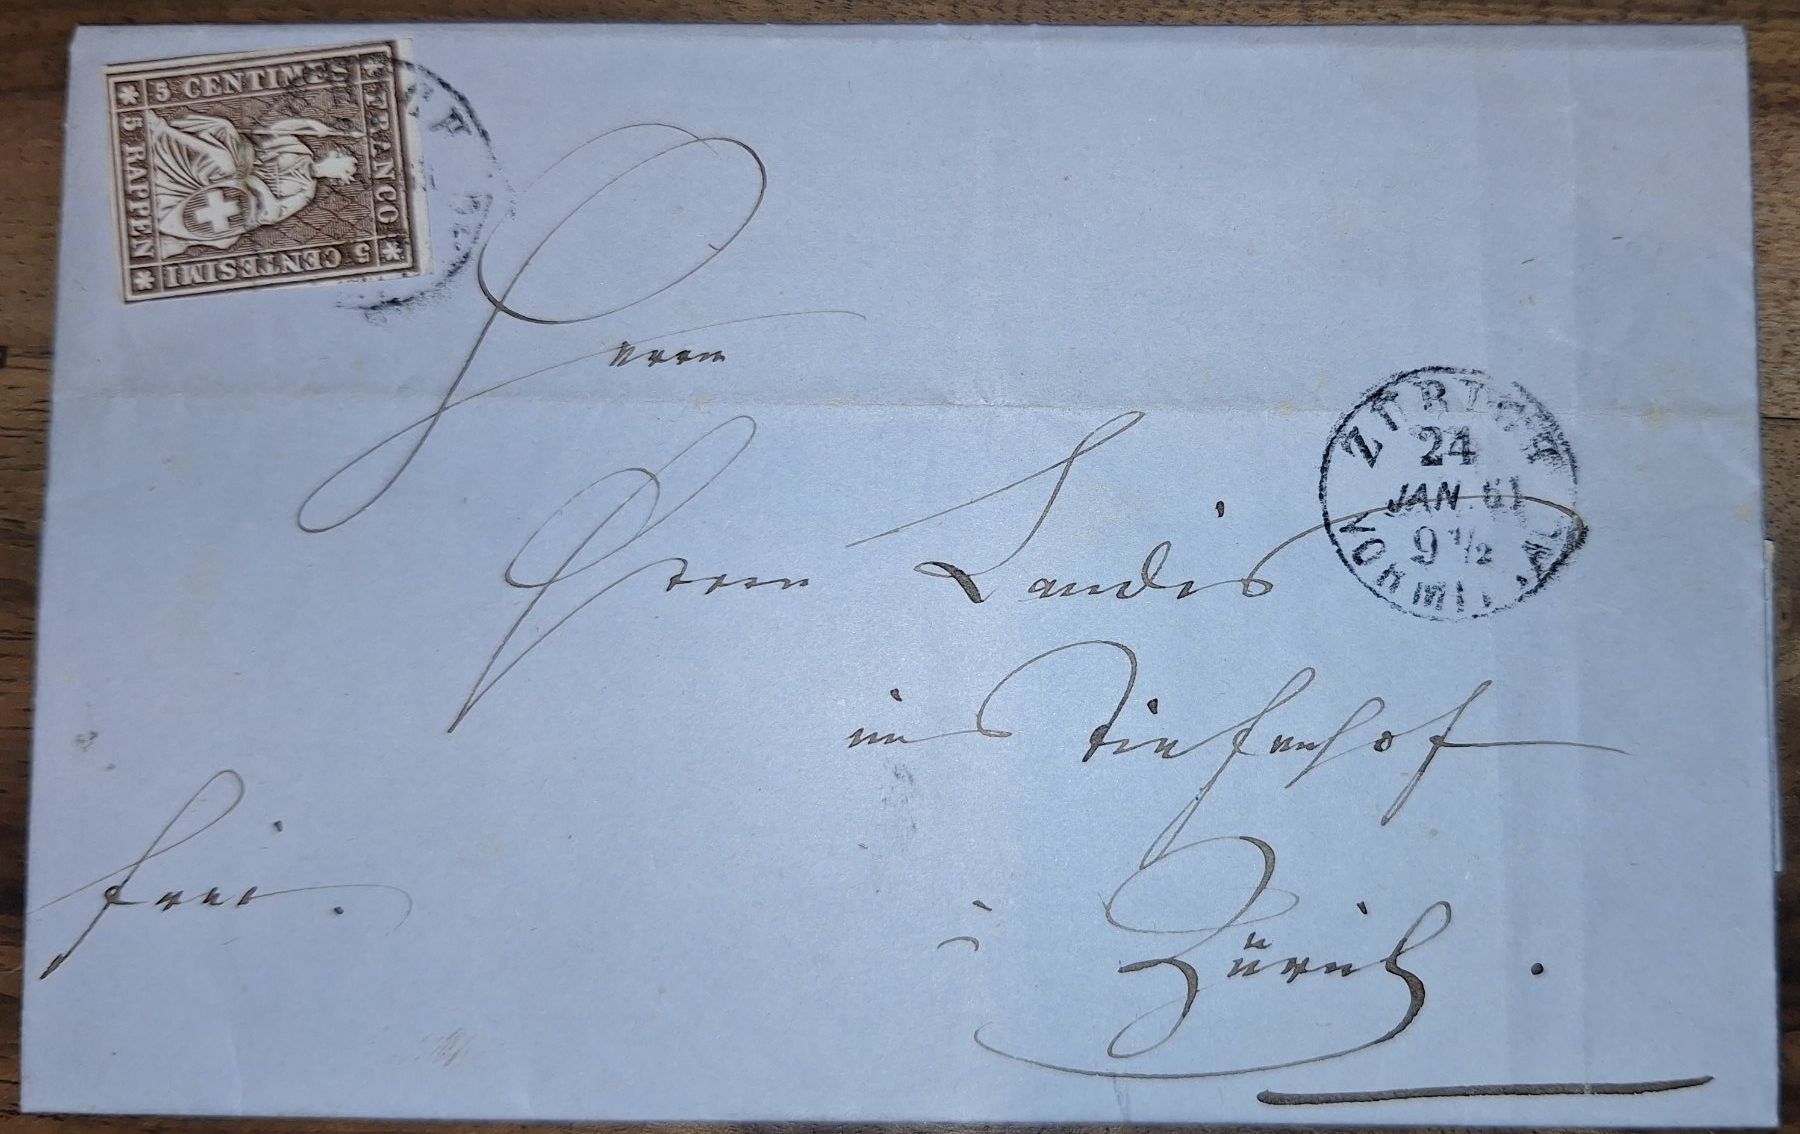 5 CENTIMES
FRANCO
5 CENTESIMI
5 RAPPEN
Herrn
Herrn Landis
im Tiefenhof
Zürich.
frei.
ZÜRICH
24
JAN. 61
9 1/2
VORMITTAG